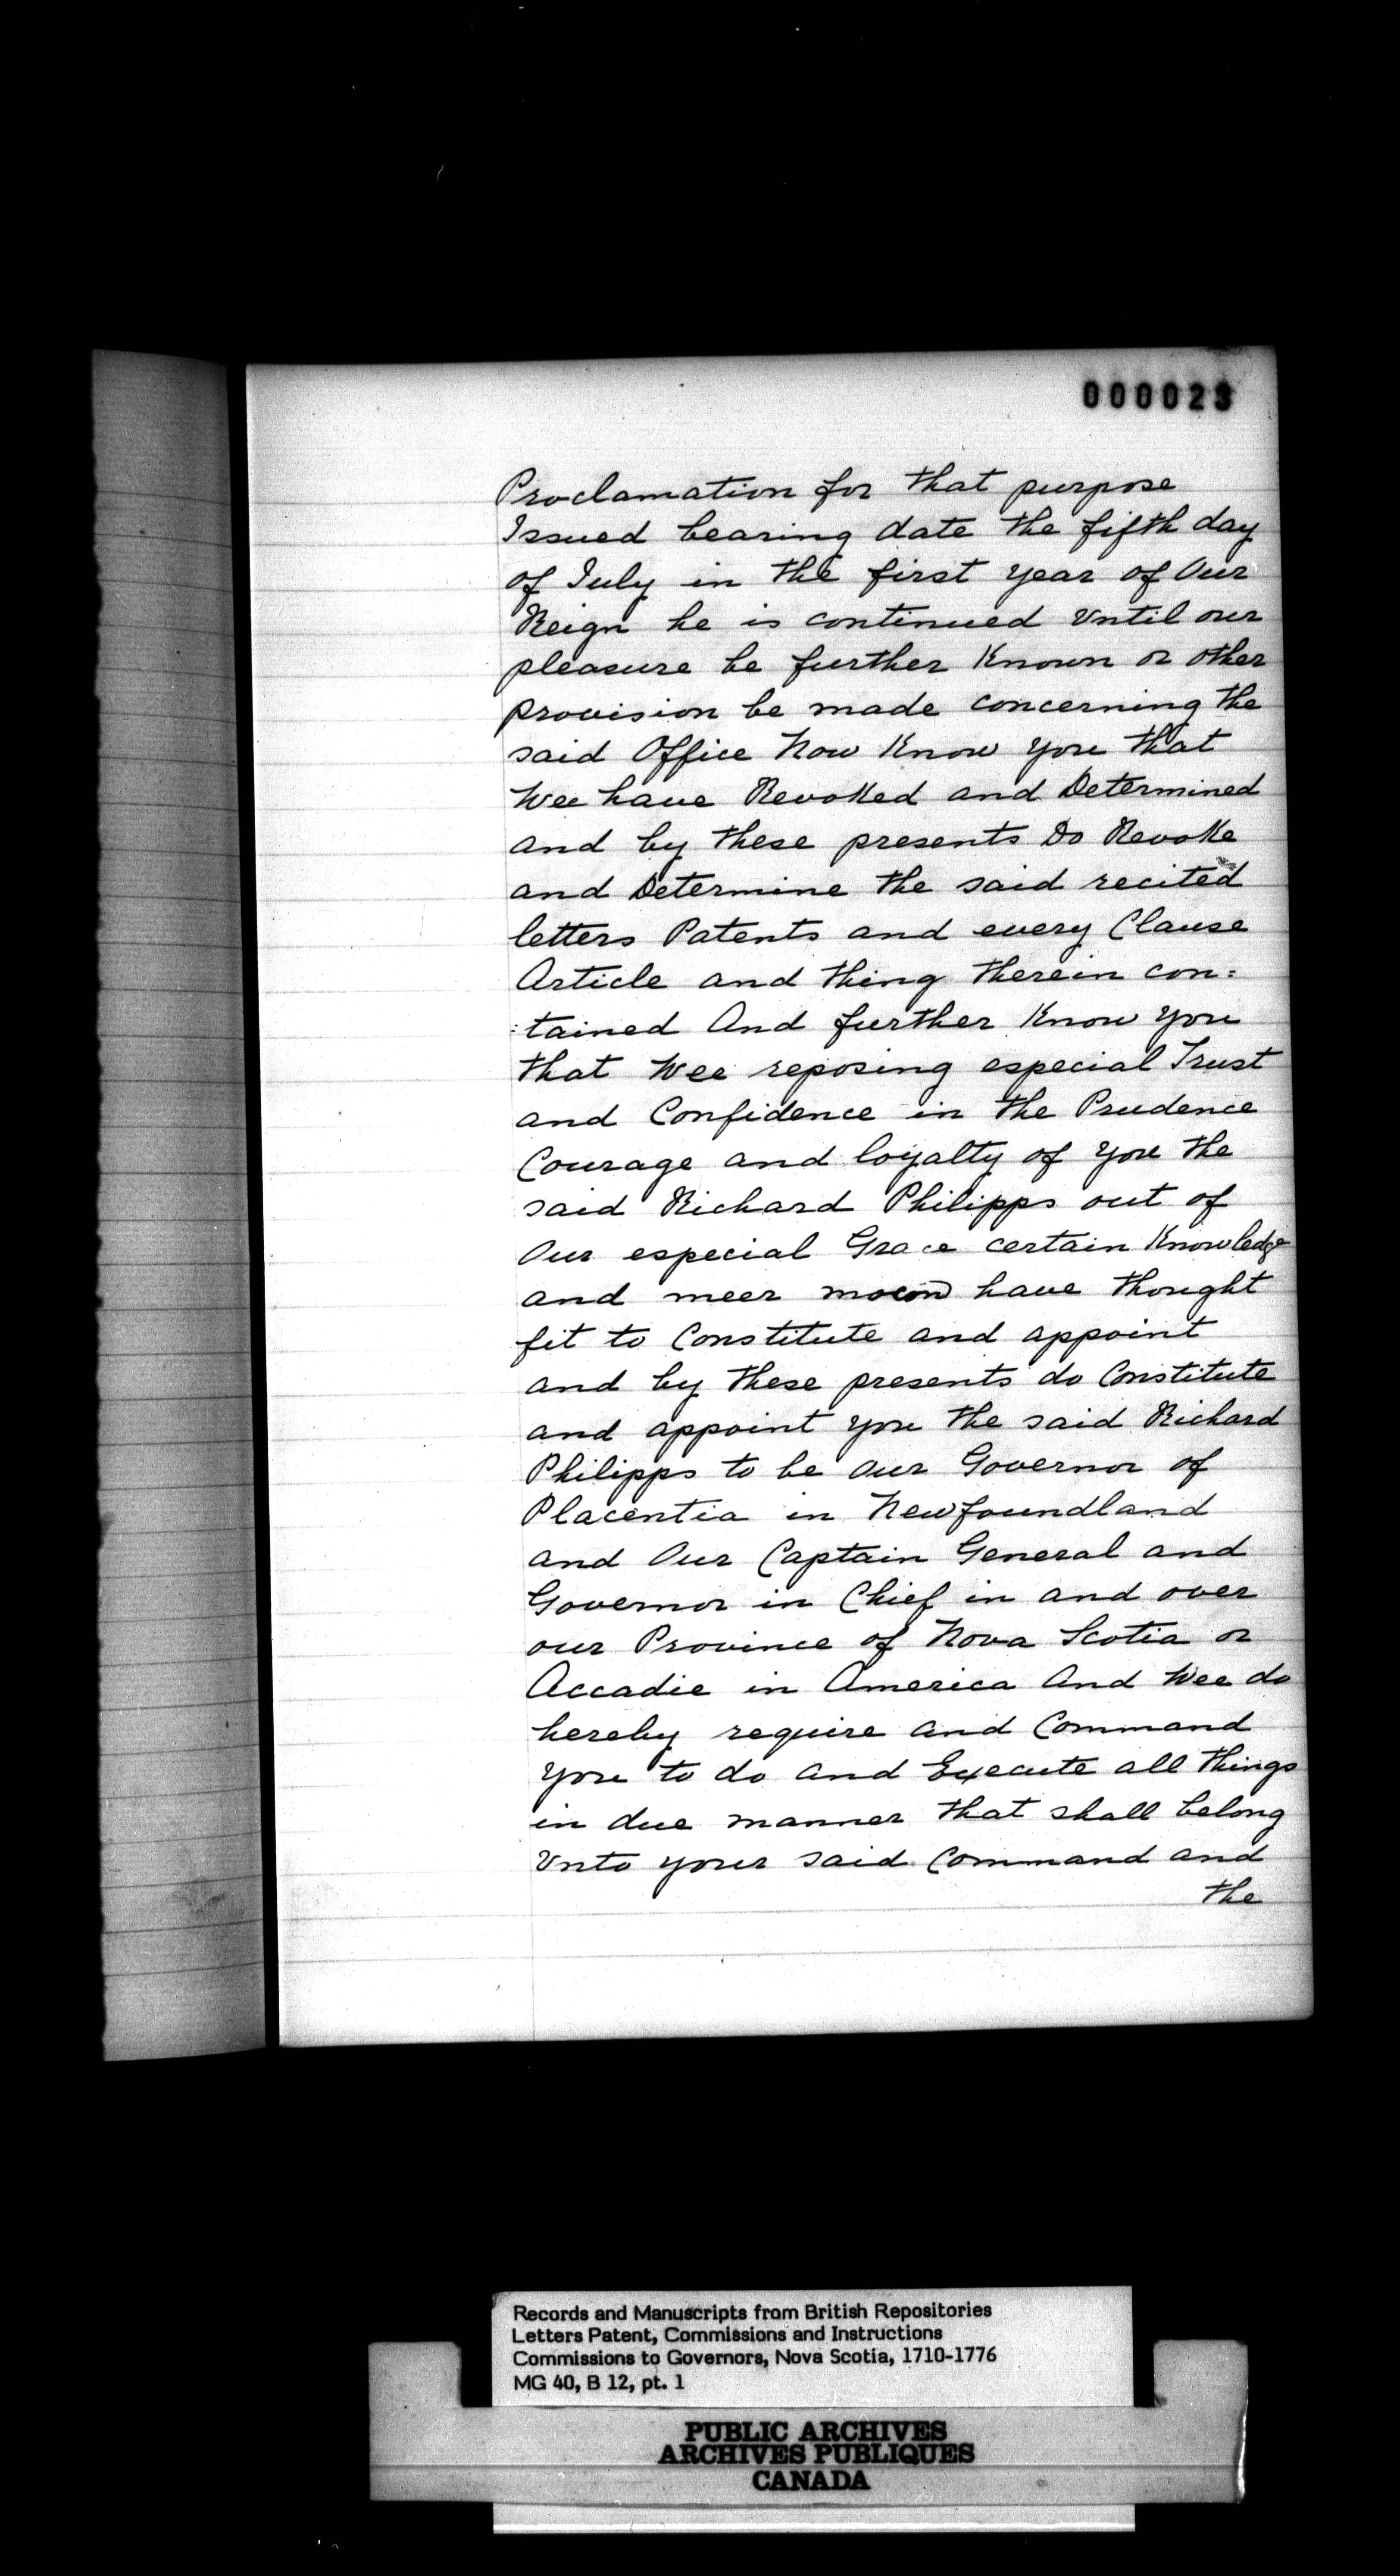 000023
Proclamation for that purpose
Issued bearing date the fifth day
of July in the first year of Our
Reign he is continued Vntil our
pleasure be further Known or other
provision be made concerning the
said Office Now Know you that
Wee have Revoked and Determined
and by these presents Do Revoke
and Determine the said recited
letters Patents and every Clause
Article and thing therein con:
:tained And further Know you
that Wee reposing especial Trust
and Confidence in the Prudence
Courage and loyalty of you the
said Richard Philipps out of
Our especial Grace certain Knowledge
and meer mocon have thought
fit to Constitute and appoint
and by these presents do Constitute
and appoint you the said Richard
Philipps to be Our Governor of
Placentia in Newfoundland
and Our Captain General and
Governor in Chief in and over
our Province of Nova Scotia or
Accadie in America And Wee do
hereby require and Command
you to do and Execute all things
in due manner that shall belong
Vnto your said Command and
the
Records and Manuscripts from British Repositories
Letters Patent, Commissions and Instructions
Commissions to Governors, Nova Scotia, 1710-1776
MG 40, B 12, pt. 1
PUBLIC ARCHIVES
ARCHIVES PUBLIQUES
CANADA